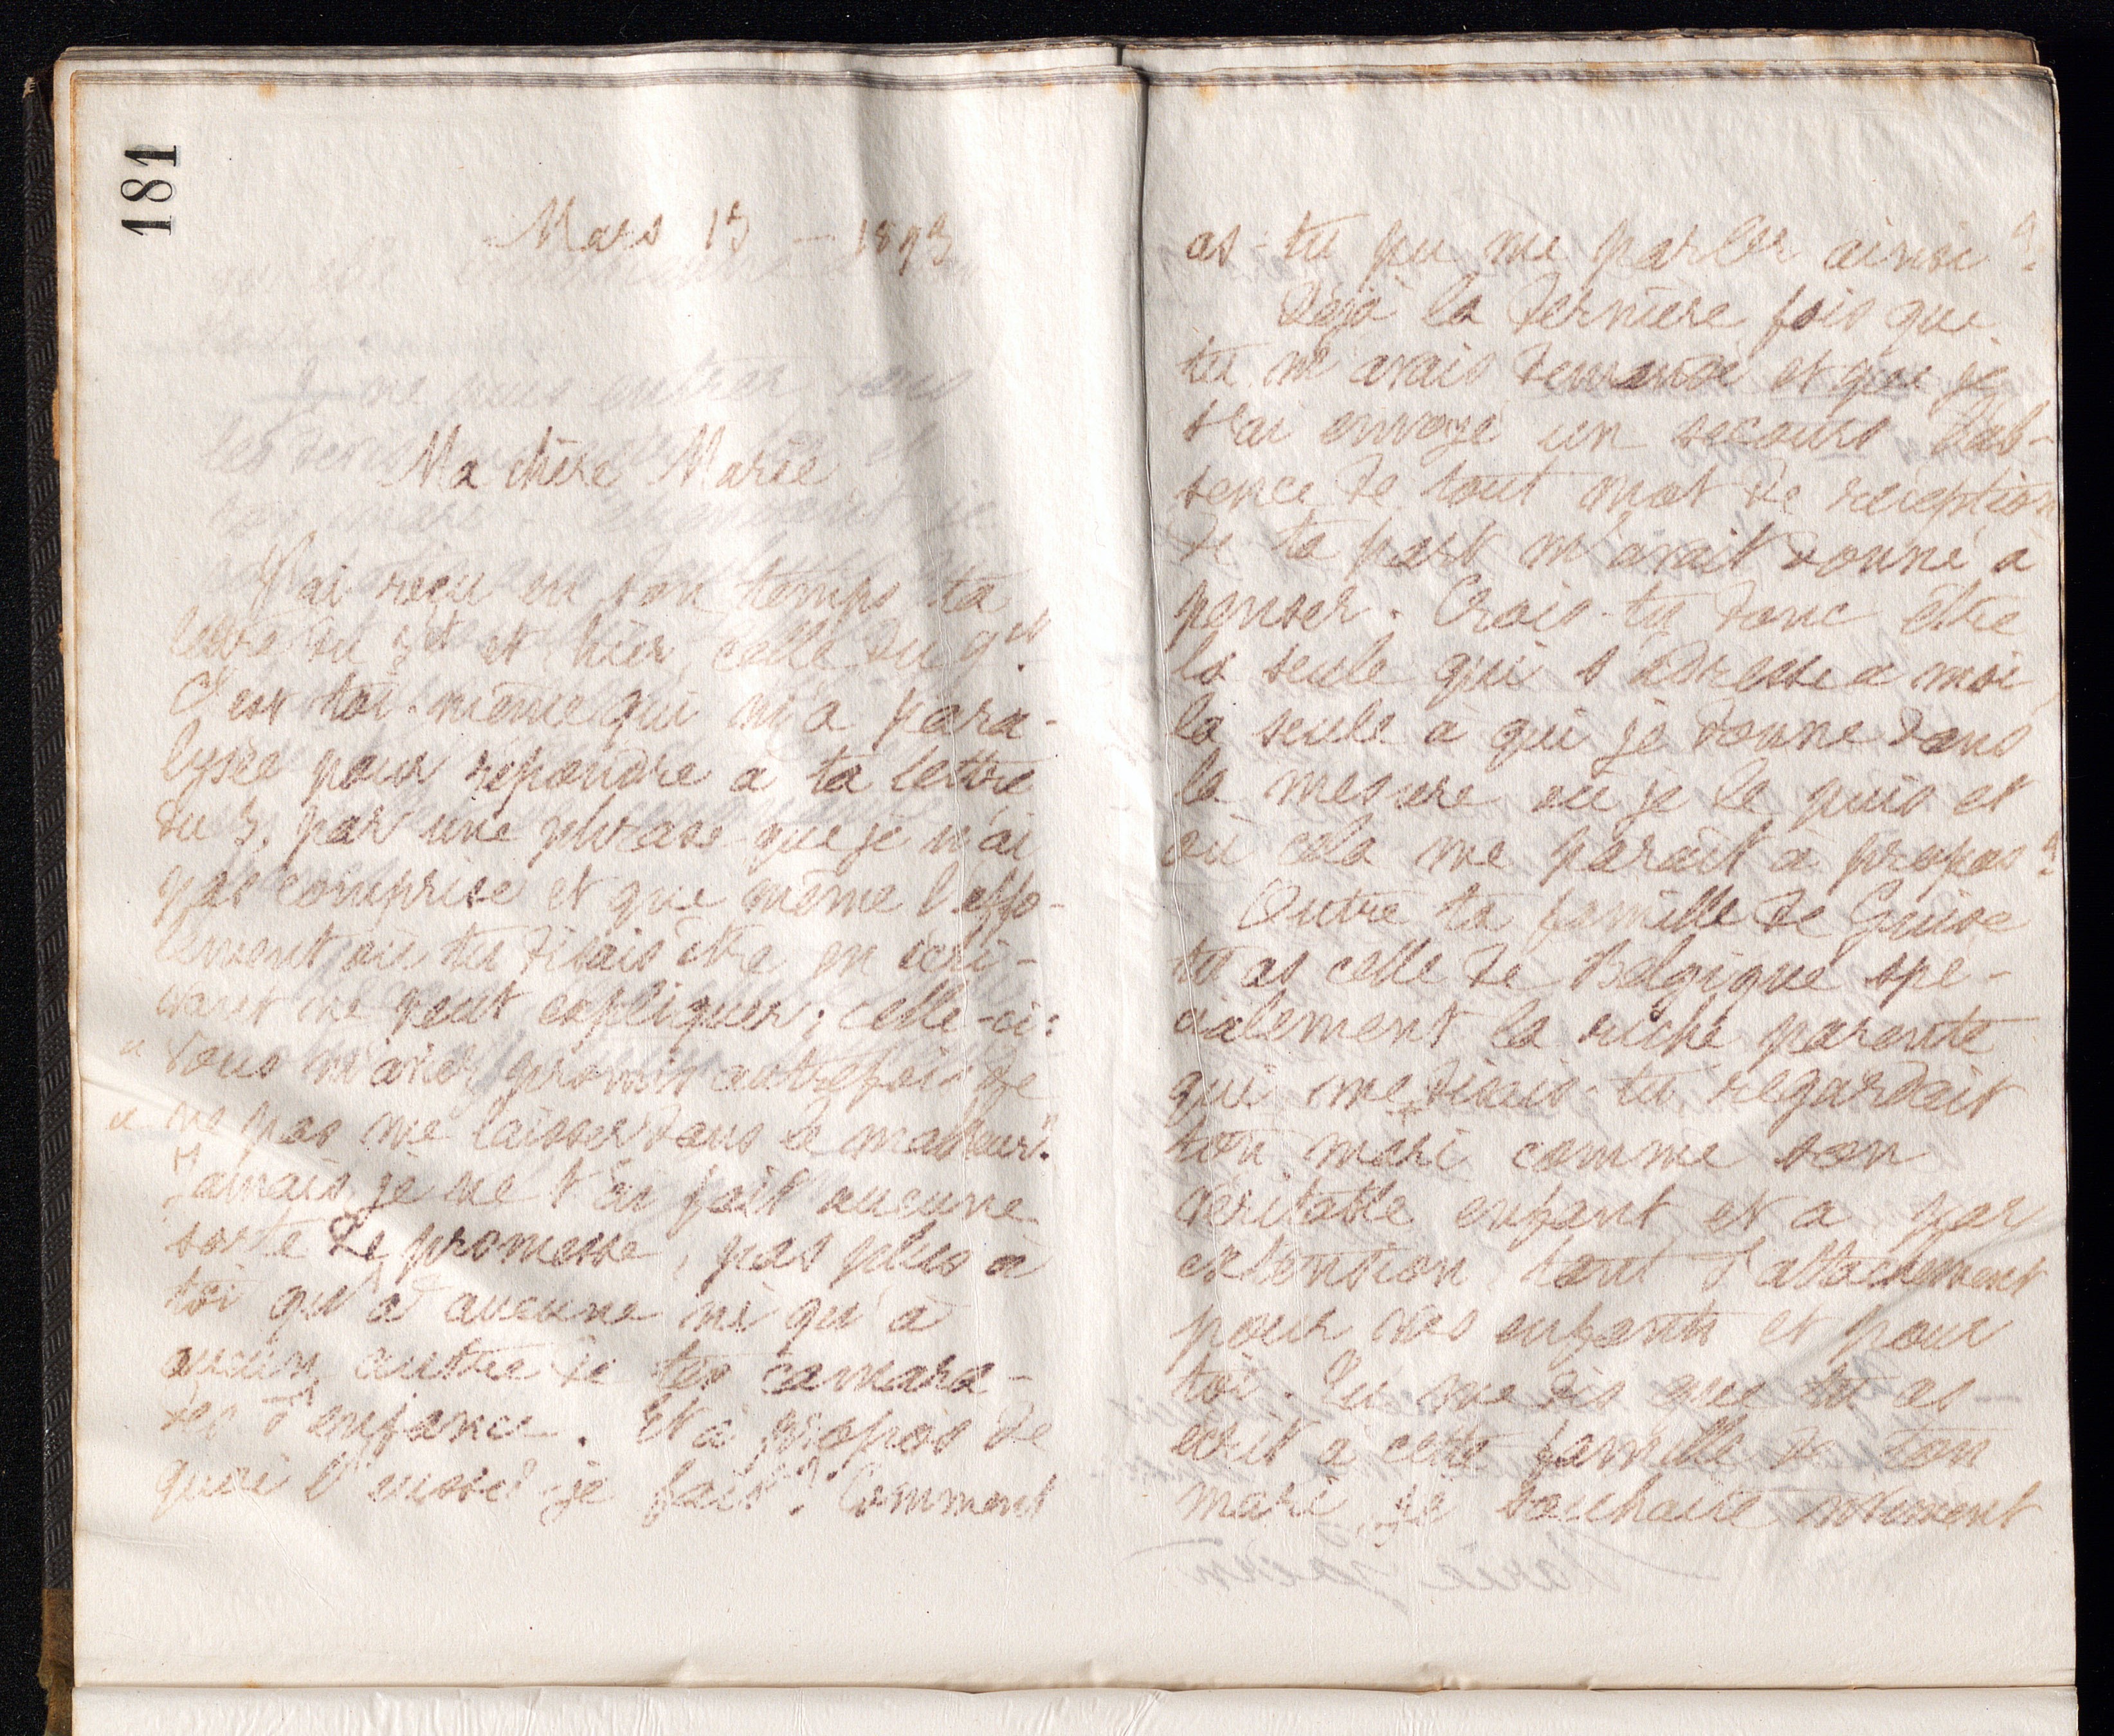 181
Mars 13 - 1893
Ma chère Marie
J'ai reçu en son temps ta
lettre du 3 et et hier, celle du 9 ct.
C'est toi-même qui m'a para-
lysée pour répondre à ta lettre
du 3, par une phrase que je n'ai
pas comprise et que même l'affo-
lement où tu disais être en écri-
vant ne peut expliquer; celle-ci:
« Vous m'aviez promis autrefois de
« ne pas me laisser dans le malheur".
Jamais, je ne t'ai fait aucune
sorte de promesse, pas plus à
toi qu'à aucune ni qu'à
aucun autre de tes camara-
des d'enfance. Et à propos de
quoi l'eussé-je fait? Comment
as-tu pu me parler ainsi?
Déjà la dernière fois que
tu m'avais demandé et que je
t'ai envoyé un secours l'ab-
sence de tout mot de réception
de ta part m'avait donné à
penser. Crois-tu donc être
la seule qui s'adresse à moi,
la seule à qui je donne dans
la mesure où je le puis et
où cela me paraît à propos?
Outre ta famille de Guise
tu as celle de Belgique spé-
cialement la riche parente
qui me disais-tu regardait
ton mari comme son
véritable enfant et a par
extension tant d'attachement
pour vos enfants et pour
toi. Tu me dis que tu as
écrit à cette famille de ton
mari, je souhaite vivement